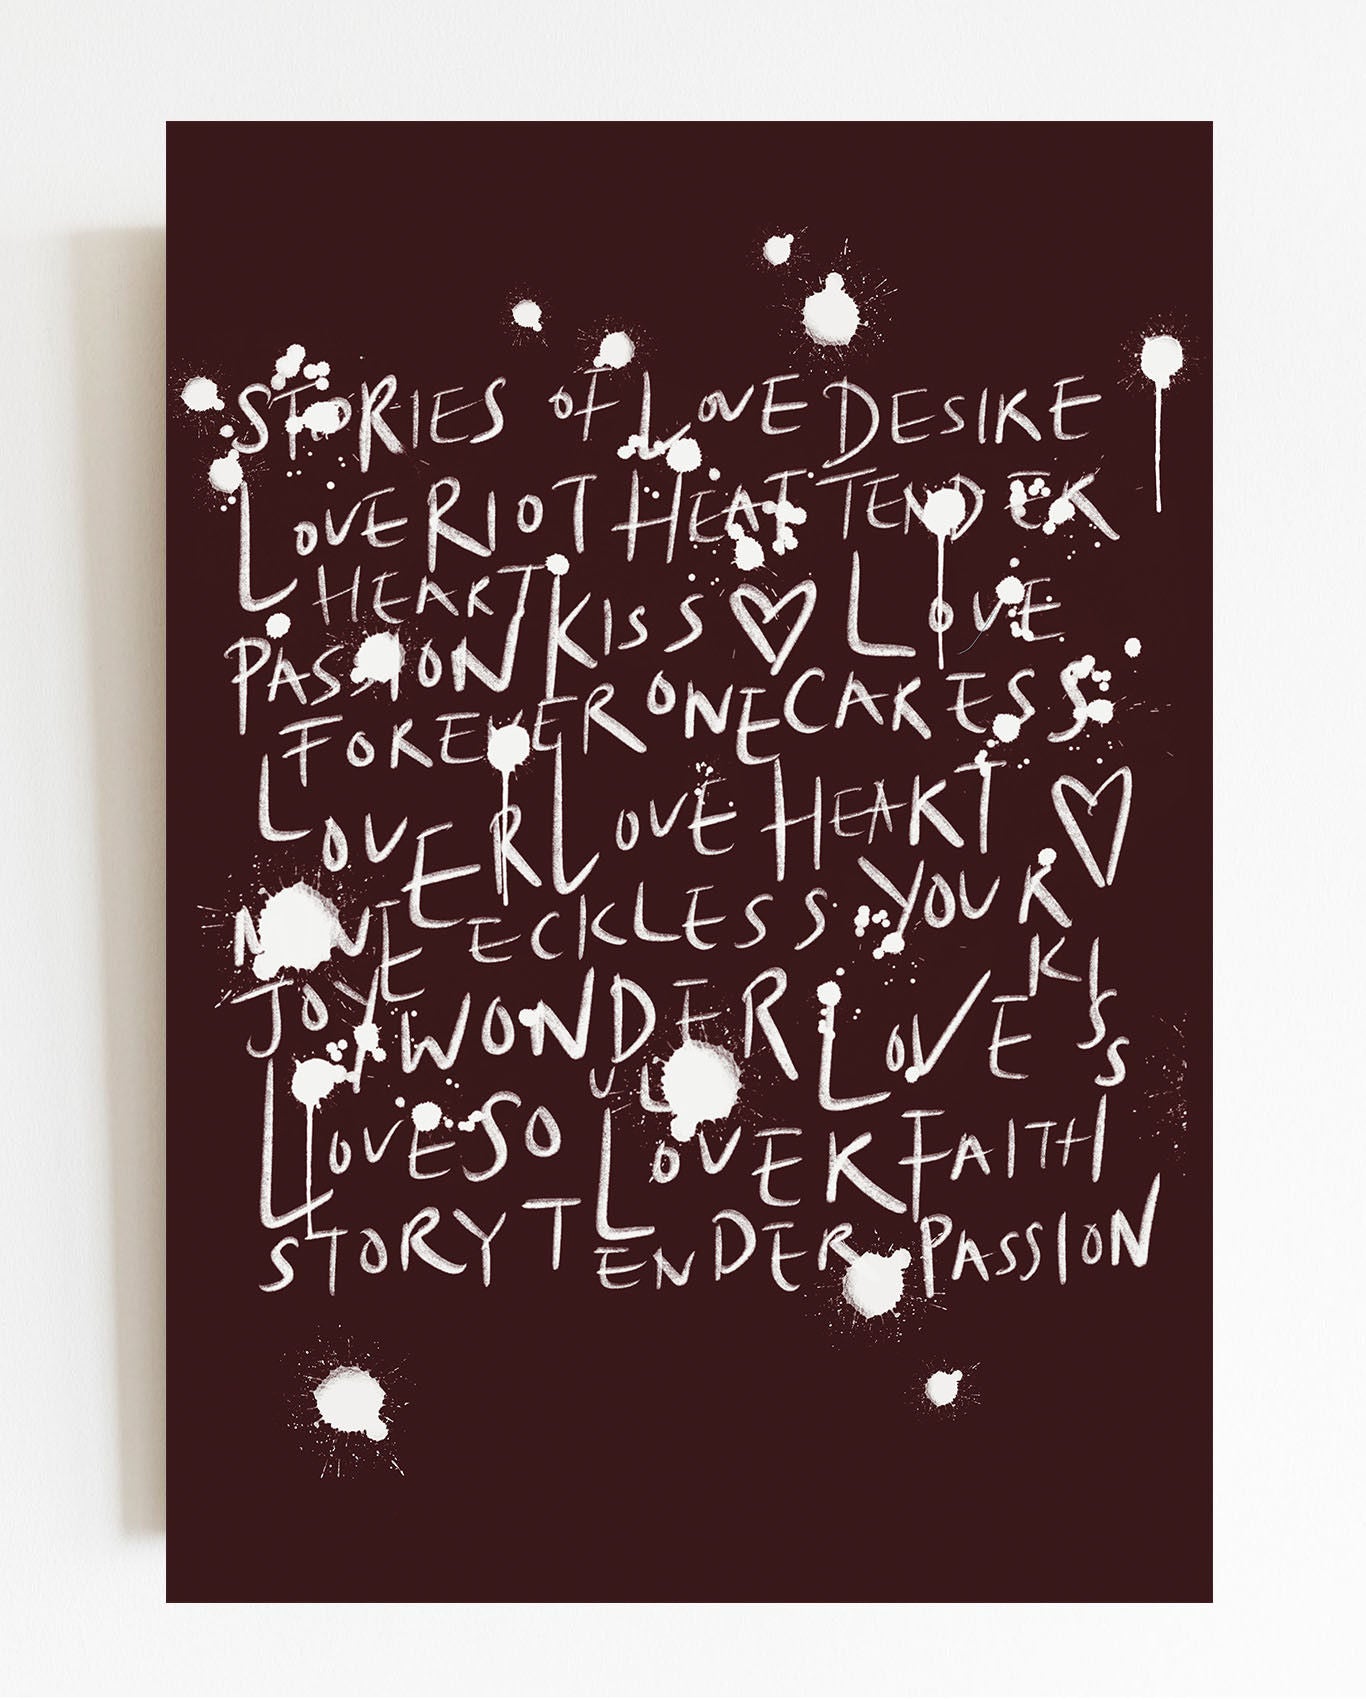 STORIES OF LOVE DESIRE
LOVE RIOT HEAT TENDER
HEART KISS LOVE
PASSION
FOREVER ONE CARESS
LOVER LOVE HEART
ECKLESS YOUR
JOY WONDER LOVE KISS
LOVE SOUL LOVER FAITH
STORY TENDER PASSION